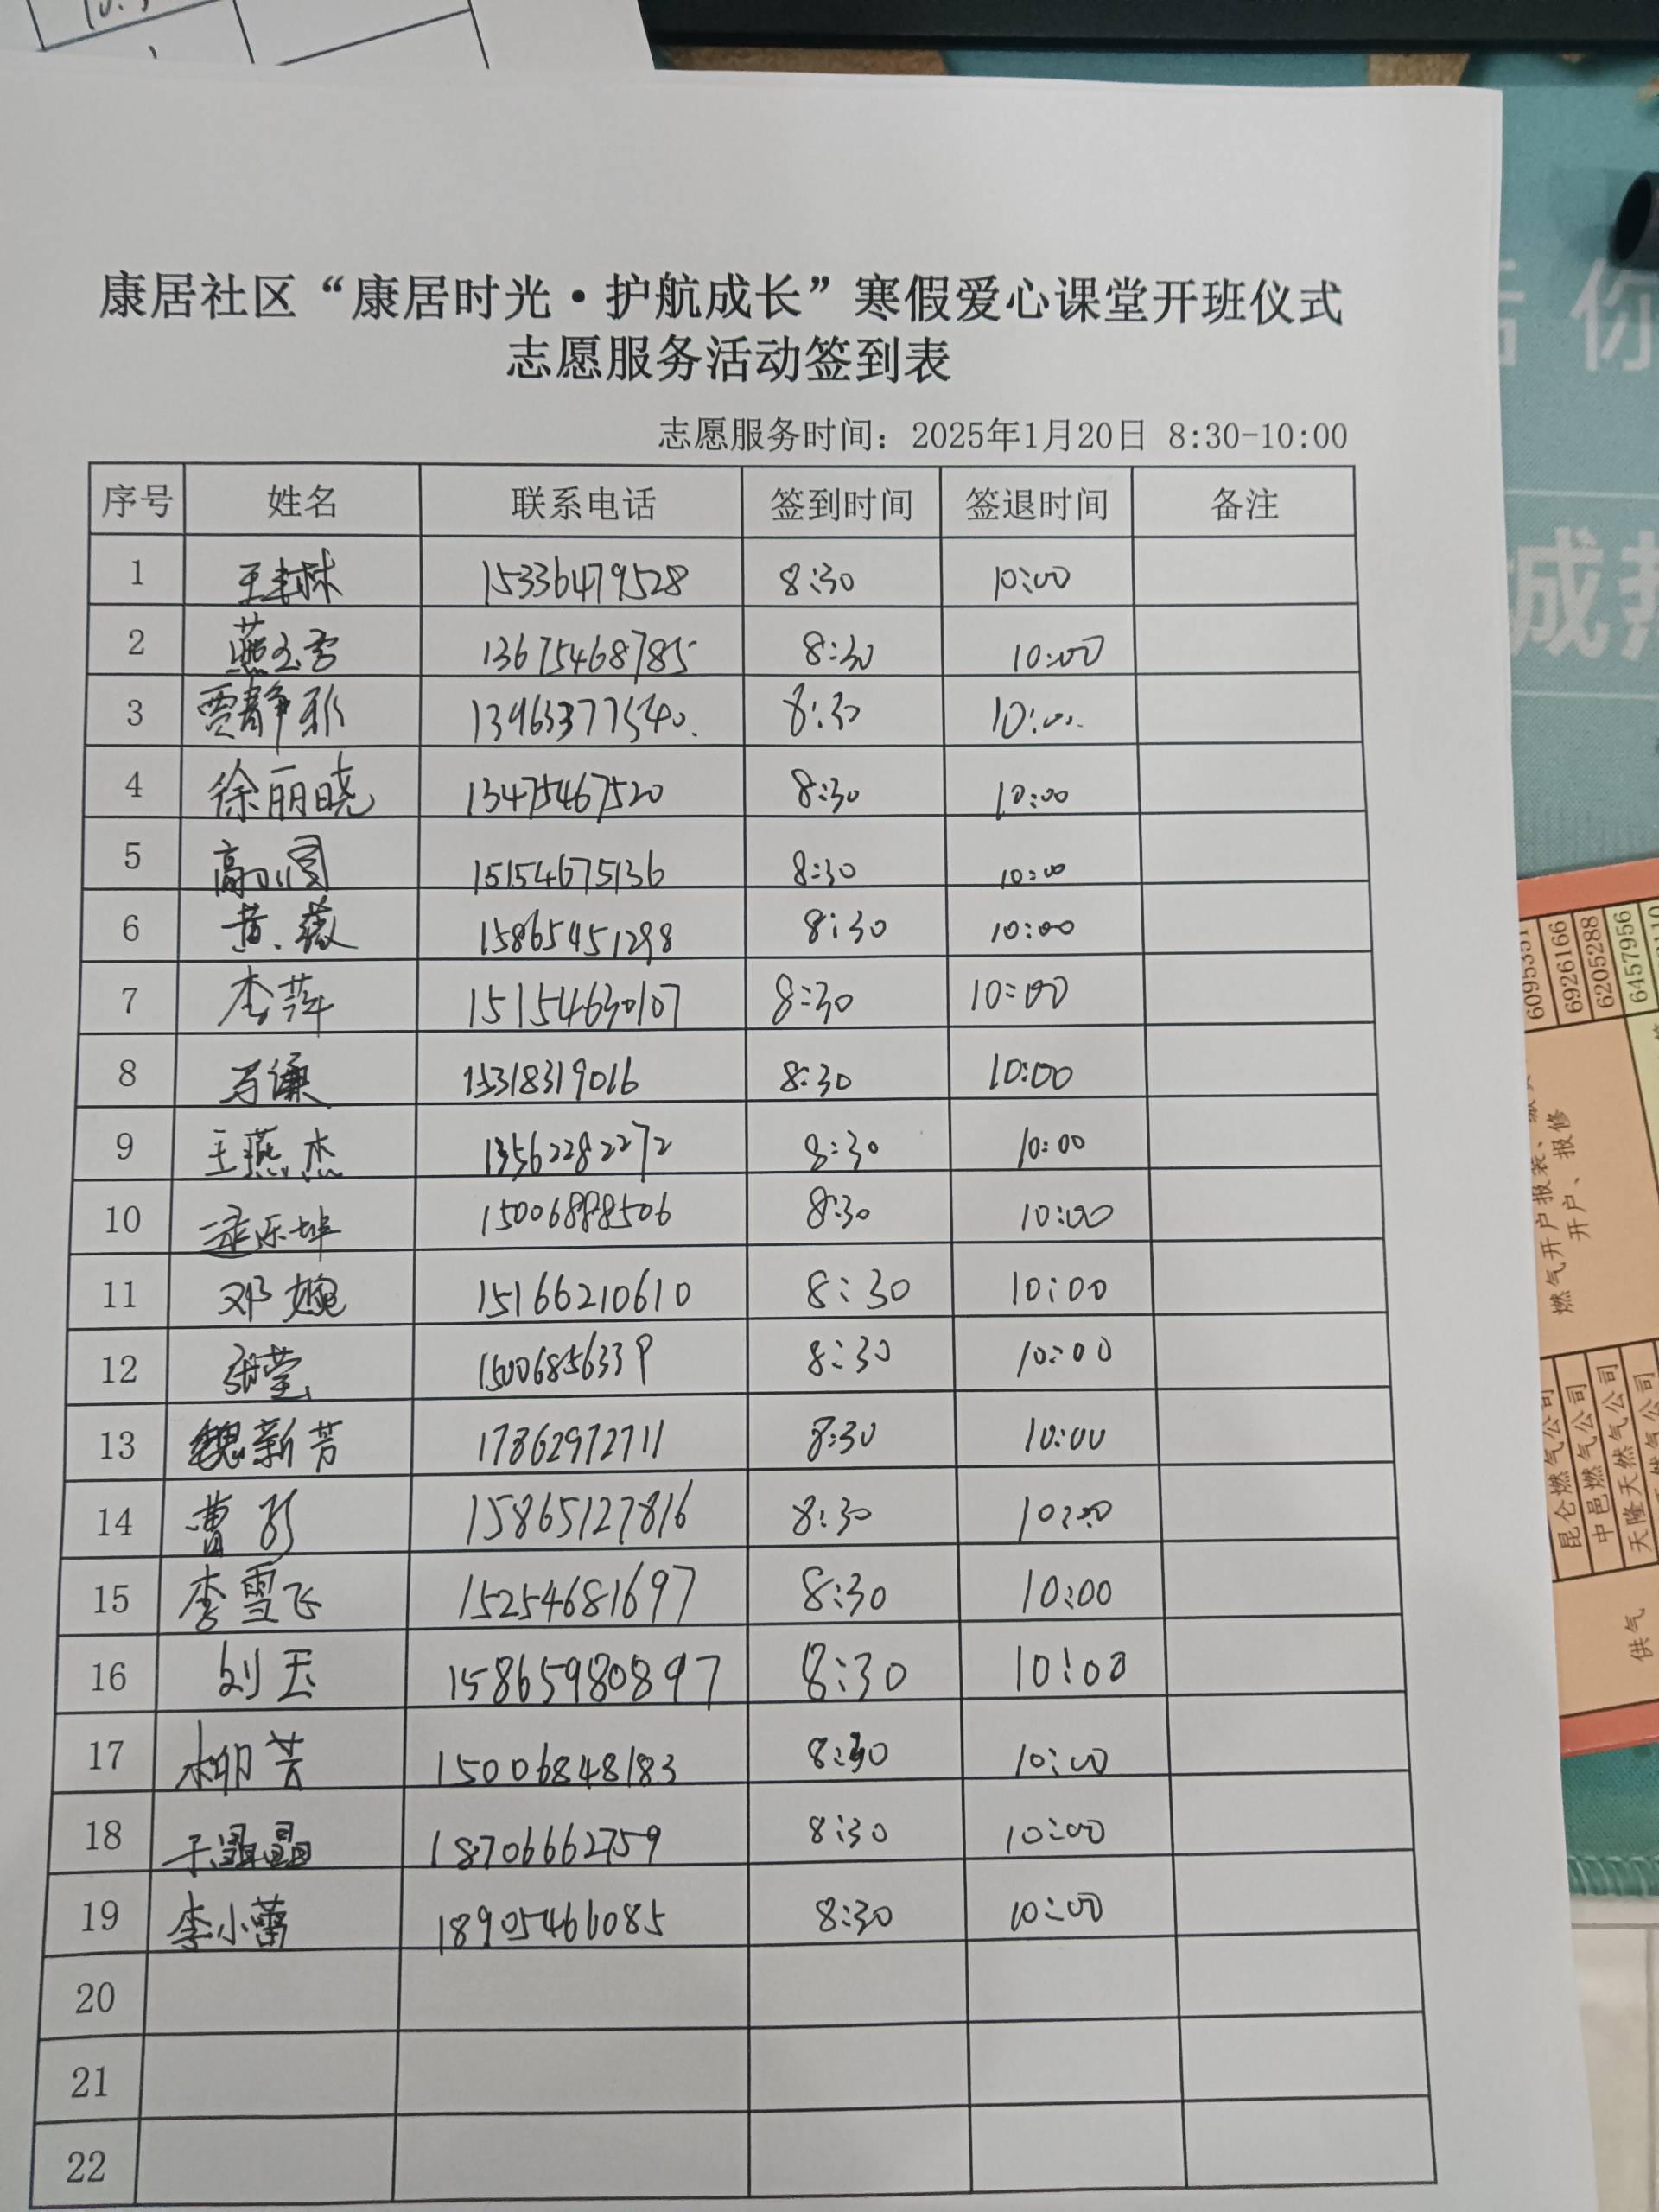 康居社区“康居时光·护航成长”寒假爱心课堂开班仪式
志愿服务活动签到表
志愿服务时间：2025年1月20日 8:30-10:00
序号 姓名 联系电话 签到时间 签退时间 备注
1 15336479528 8:30 10:00
2 燕玉雪 13675468785 8:30 10:00
3 贾静雅 13963377540. 8:30 10:00.
4 徐丽晓 13475467520 8:30 10:00
5 15154675136 8:30 10:00
6 黄薇 15865451298 8:30 10:00
7 李萍 15154630107 8:30 10:00
8 马谦 15318319016 8:30 10:00
9 王燕杰 13562282272 8:30 10:00
10 15006888506 8:30 10:00
11 邓婉 15166210610 8:30 10:00
12 张莹 15006856339 8:30 10:00
13 魏新芳 17862972711 8:30 10:00
14 曹 15865127816 8:30 10:00
15 李雪飞 15254681697 8:30 10:00
16 刘玉 15865980897 8:30 10:00
17 柳芸 15006848183 8:30 10:00
18 于晶晶 18706662759 8:30 10:00
19 李小蕾 18905466085 8:30 10:00
20
21
22
你
诚
6926166
6205288
6457956
燃气开户报表、
开户、报修
昆仑燃气公司
中邑燃气公司
天隆天然气公司
供气